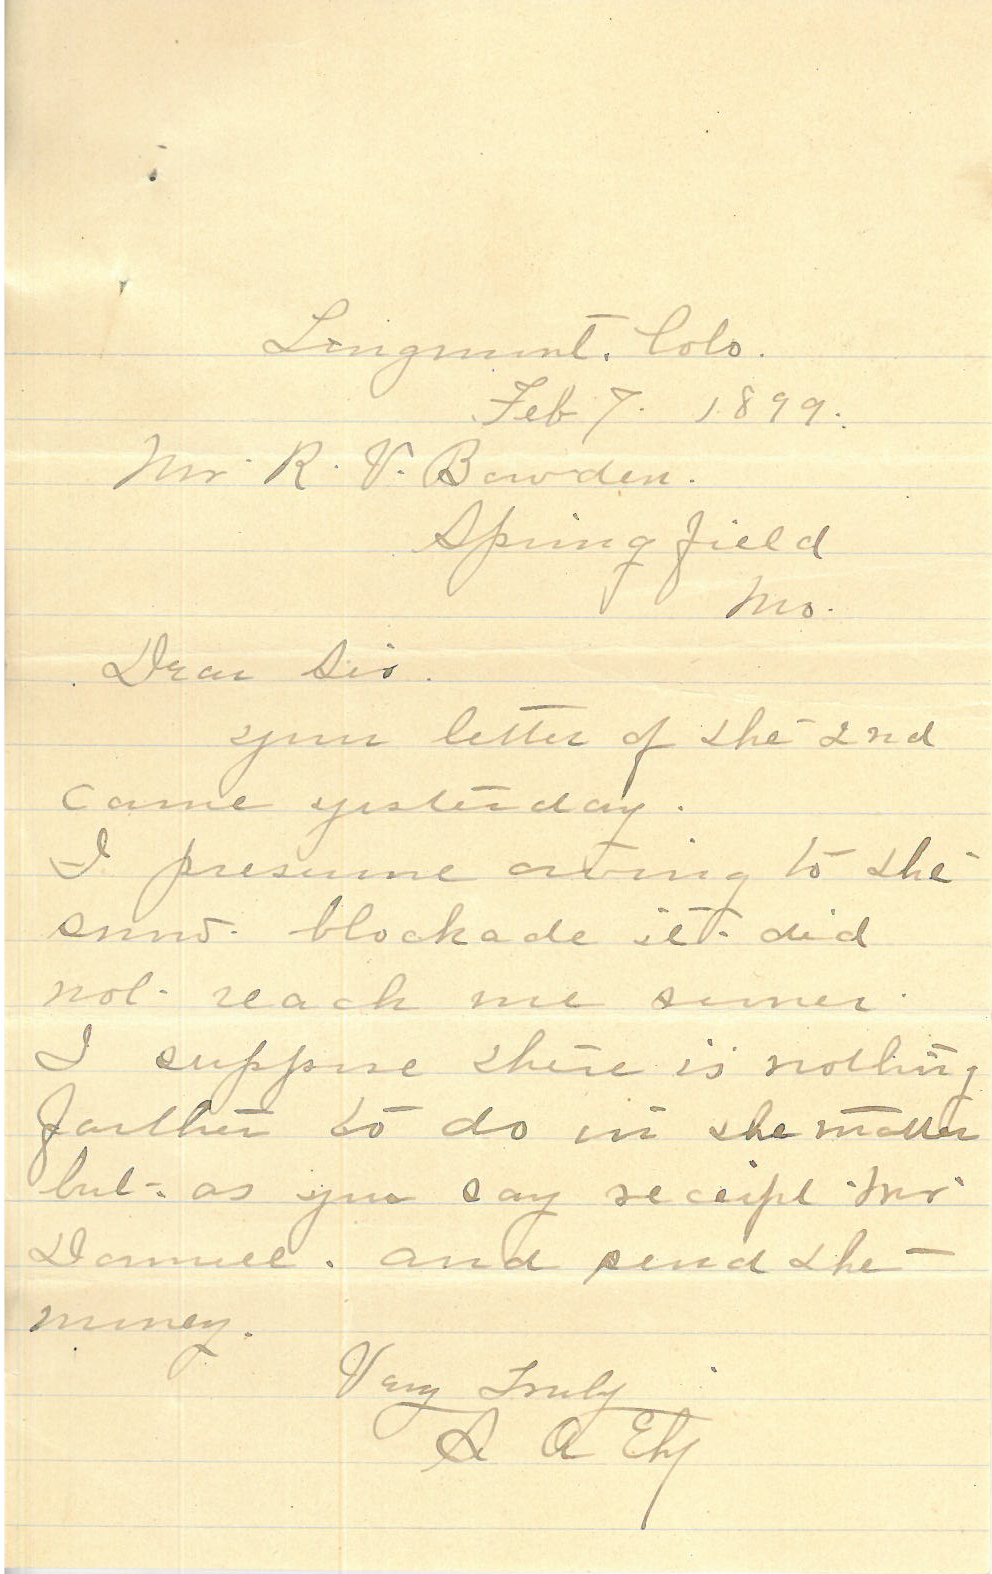 Longmont. Colo.
Feb 7. 1899.
Mr. R. V. Bowden.
Springfield
Mo.
Dear Sir.
your letter of the 2nd
came yesterday.
I presume owing to the
snow blockade it did
not reach me sooner.
I suppose there is nothing
farther to do in the matter
but as you say receipt Mr
and send the
money.
Very Truly
S A